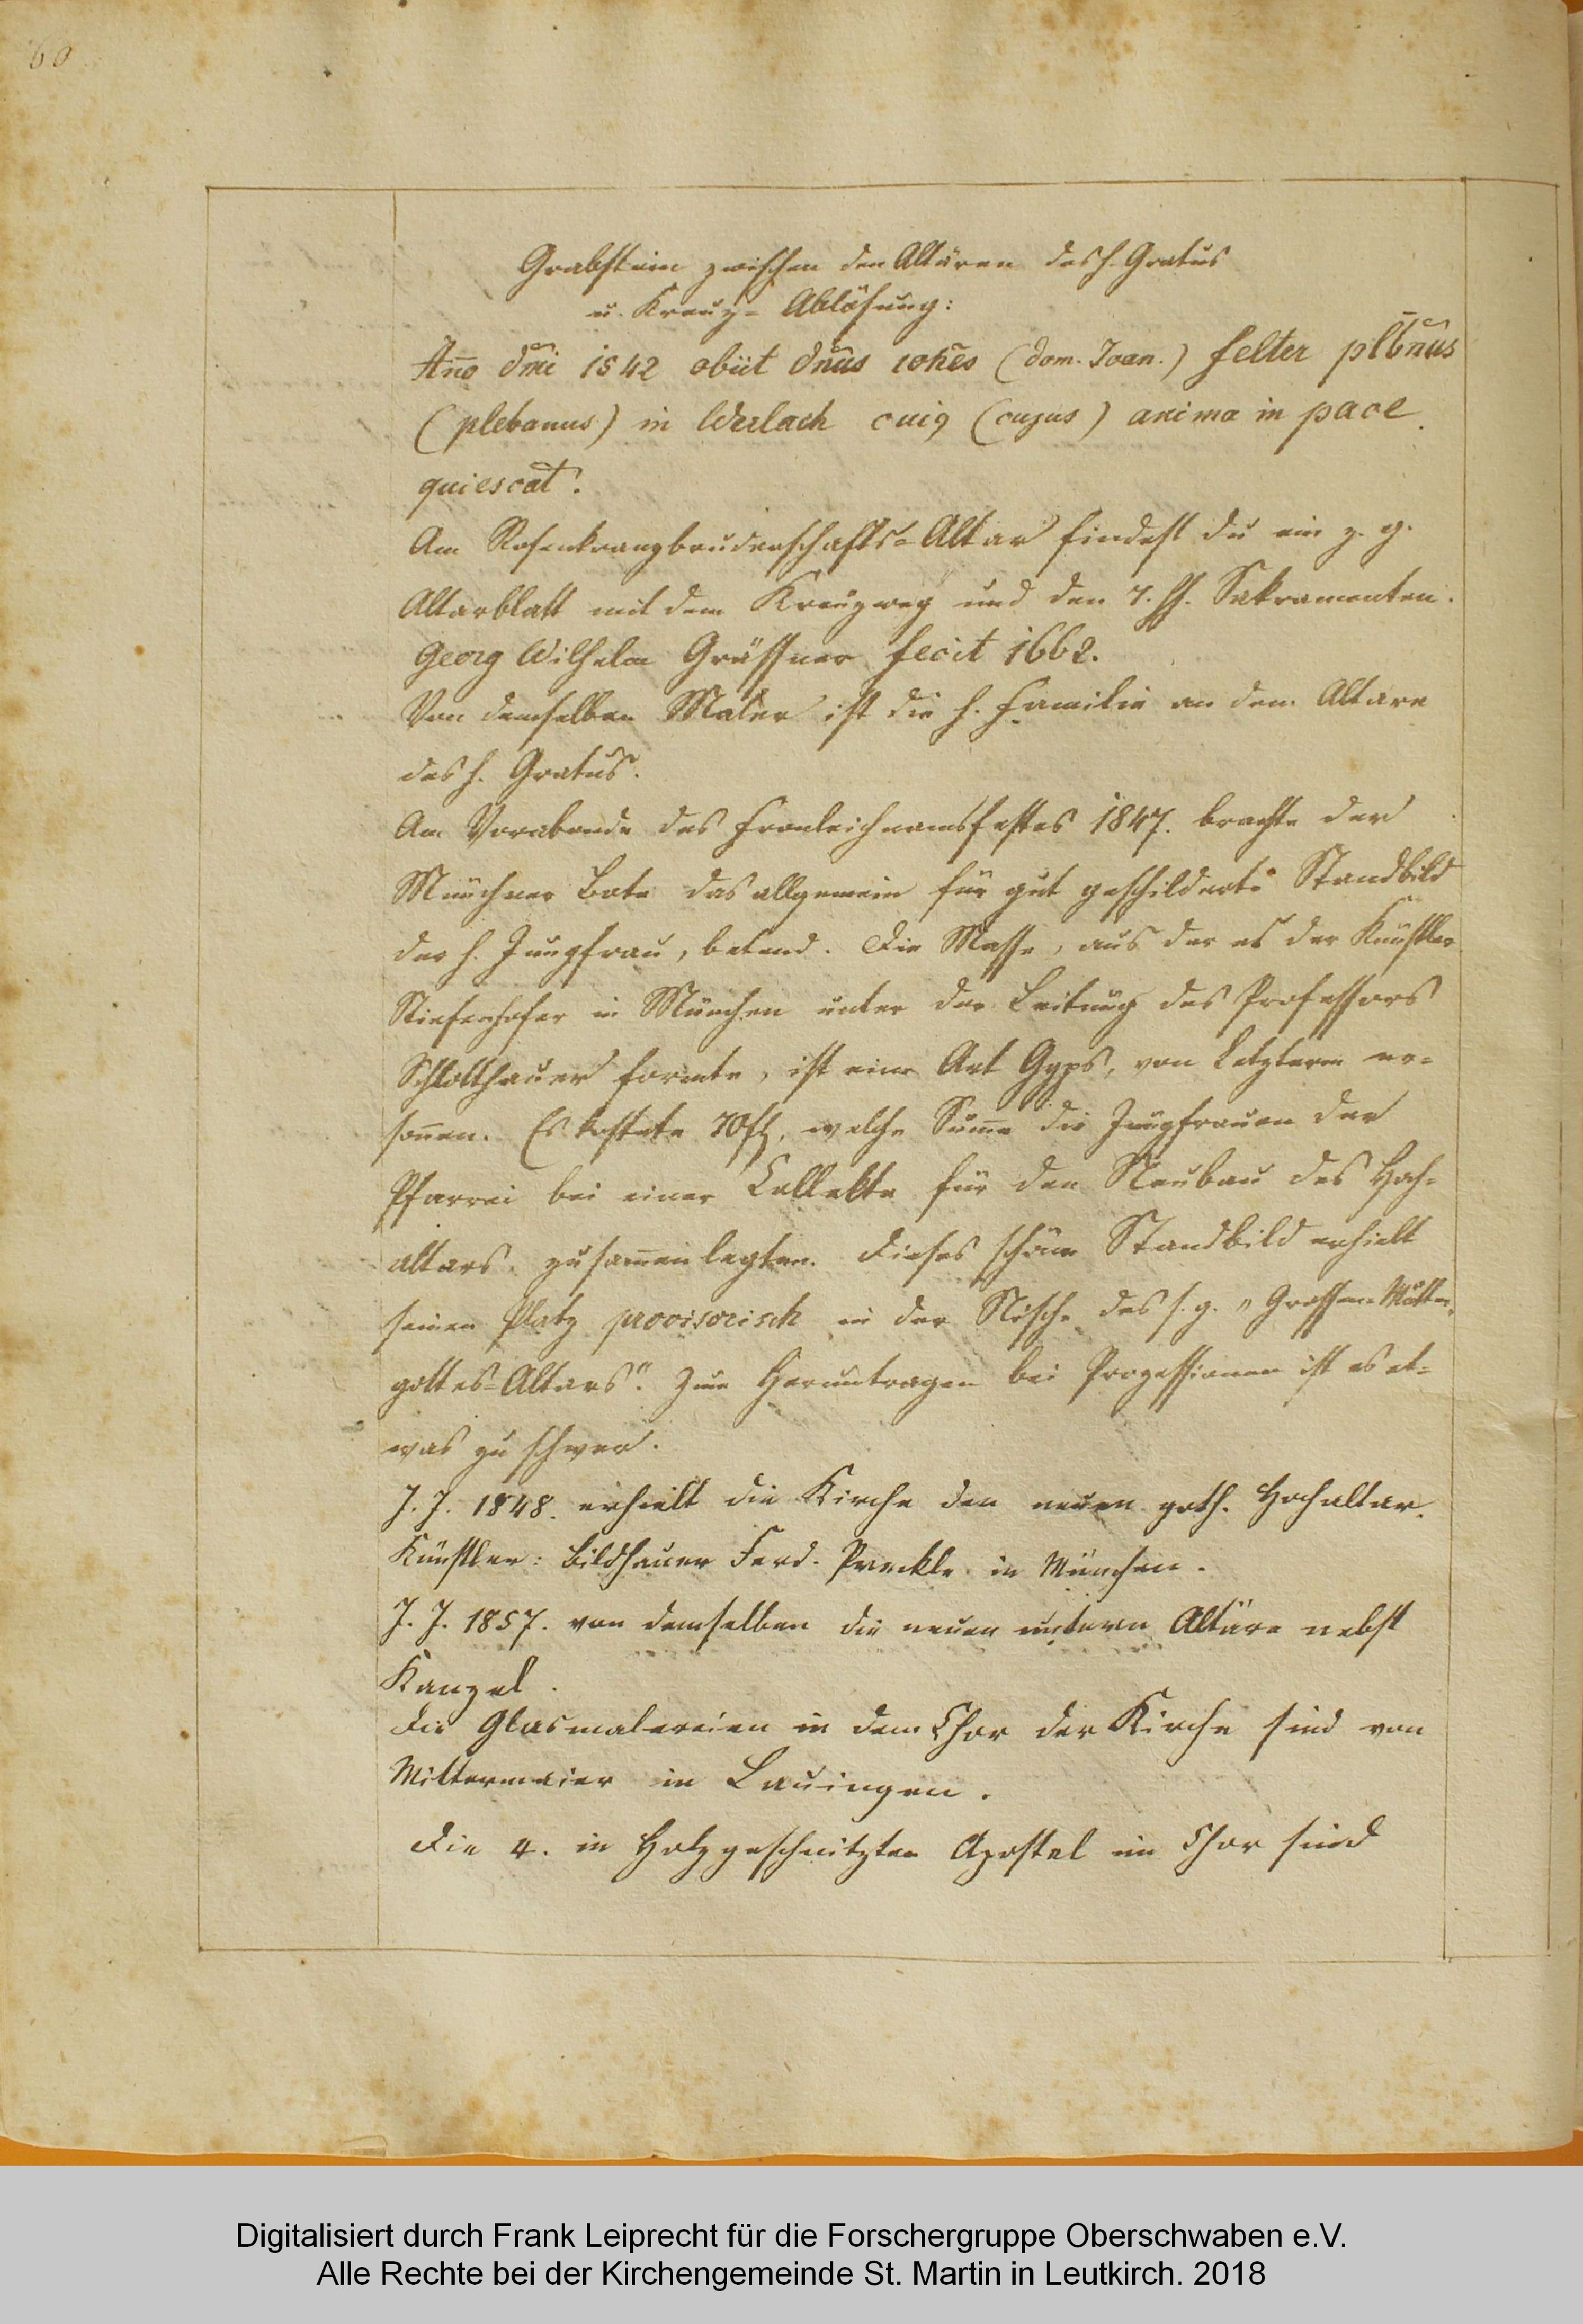 60
Grabstein zwischen den Altären des h. Gratus
u. Kreuz- Ablösung:
Año dm̃i 1542 obiit dñus iohẽs (dom. Joan.) felter plb̃nus
(plebanus) in Urlach cuiq (cujus) anima in pace
quiescat.
Am Rosenkranzbruderschafts-Altar findest du ein z. g.
Altarblatt mit dem Kreuzweg und den 7. hh. Sakramenten.
Georg Wilhelm Grässner fecit 1662.
Von demselben Maler ist die h. Familie an dem Altare
des h. Gratus.
Am Vorabende des Fronleichnamsfestes 1847. brachte der
Münchner Bote das allgemein für gut geschilderte Standbild
der h. Jungfrau, betend. Die Masse, aus der es der Künstler
Riefenhofer in München unter der Leitung des Professors
Schlotthauer formte, ist eine Art Gyps, von Letzterm er-
sonnen. Es kostete 70 fl, welche Sum̅e die Jungfrauen der
Pfarrei bei einer Collekte für den Neubau des Hoch-
altars zusam̅enlegten. Dieses schöne Standbild erhielt
seinen Platz provisorisch in der Nische des s. g. „Grossen Mutter-
gottes-Altars". Zum Herumtragen bei Prozessionen ist es et-
was zu schwer.
J. J. 1848. erhielt die Kirche den neuen goth. Hochaltar.
Künstler: Bildhauer Ferd. Preckle in München.
J. J. 1857. von demselben die neuen untern Altäre nebst
Kanzel.
Die Glasmalereien in dem Chor der Kirche sind von
Mittermaier in Lauingen.
Die 4. in Holz geschnitzten Apostel im Chor sind
Digitalisiert durch Frank Leiprecht für die Forschergruppe Oberschwaben e.V.
Alle Rechte bei der Kirchengemeinde St. Martin in Leutkirch. 2018